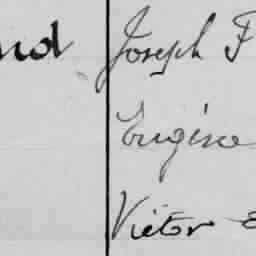 nd Joseph F
Eugène
Victor E